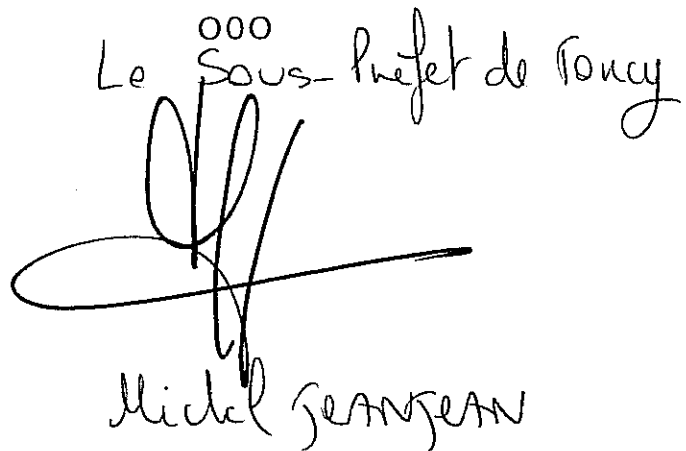 ooo
Le Sous-Préfet de Toucy
Michel JEANJEAN